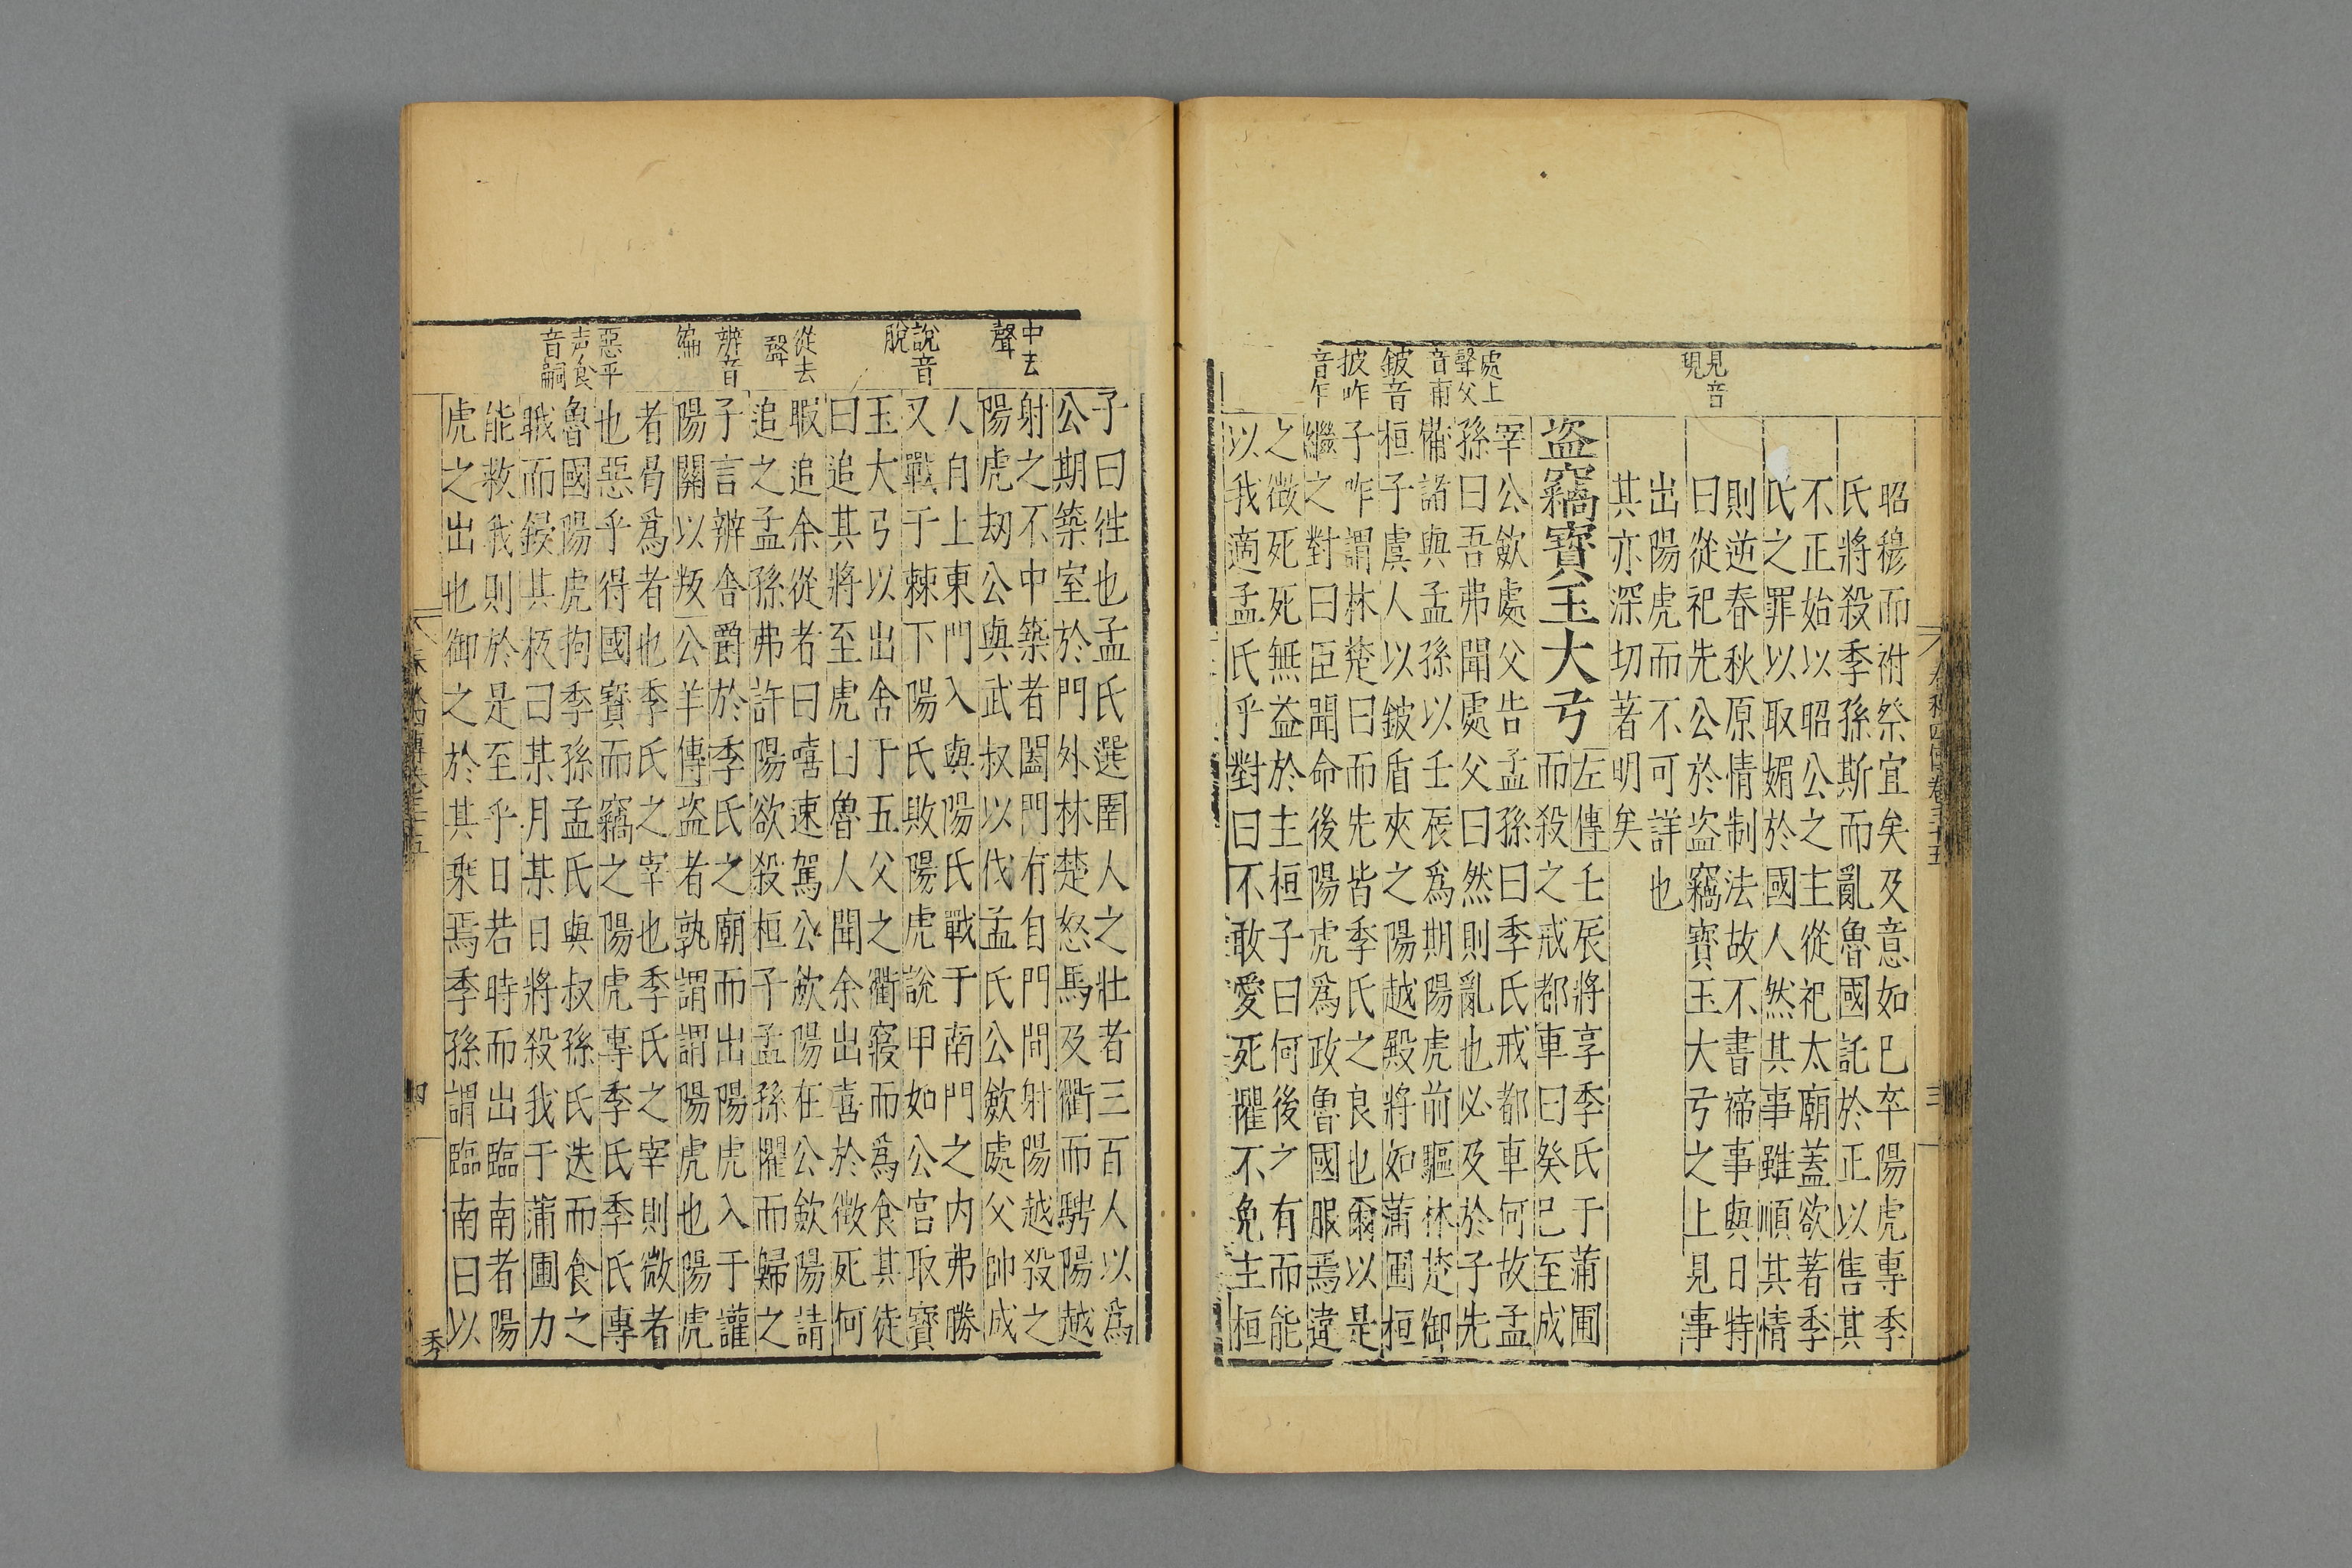 春秋四傳卷三十五
三
見音
現
處上
聲父
音甫
鈹音
披咋
音乍
昭穆而祔祭宜矣及意如巳卒陽虎專季
氏將殺季孫斯而亂魯國託於正以售其
不正始以昭公之主從祀太廟蓋欲著季
氏之罪以取媚於國人然其事雖順其情
則逆春秋原情制法故不書禘事與日特
曰從祀先公於盜竊寶玉大弓之上見事
出陽虎而不可詳也
其亦深切著明矣
盜竊寶玉大弓
左傳壬辰將享季氏于蒲圃
而殺之戒都車曰癸巳至成
宰公歛處父告孟孫曰季氏戒都車何故孟
孫曰吾弗聞處父曰然則亂也必及於子先
備諸與孟孫以壬辰爲期陽虎前驅林楚御
桓子虞人以鈹盾夾之陽越殿將如蒲圃桓
子咋謂林楚曰而先皆季氏之良也爾以是
繼之對曰臣聞命後陽虎爲政魯國服焉違
之徵死死無益於主桓子曰何後之有而能
以我適孟氏乎對曰不敢愛死懼不免主桓
中去
聲
說音
脫
從去
聲
辨音
徧
惡平
声食
音嗣
子曰徃也孟氏選圉人之壯者三百人以爲
公期築室於門外林楚怒馬及衢而騁陽越
射之不中築者闔門有自門間射陽越殺之
陽虎刧公與武叔以伐孟氏公歛處父帥成
人自上東門入與陽氏戰于南門之内弗勝
又戰于棘下陽氏敗陽虎說甲如公宮取寶
玉大弓以出舍于五父之衢寢而爲食其徒
曰追其將至虎曰魯人聞余出喜於徵死何
暇追余從者曰嘻速駕公歛陽在公歛陽請
追之孟孫弗許陽欲殺桓子孟孫懼而歸之
子言辨舍爵於季氏之廟而出陽虎入于讙
陽關以叛公羊傳盜者孰謂謂陽虎也陽虎
者曷爲者也季氏之宰也季氏之宰則微者
也惡乎得國寶而竊之陽虎專季氏季氏專
魯國陽虎拘季孫孟氏與叔孫氏迭而食之
睋而鋟其板曰某月某日將殺我于蒲圃力
能救我則於是至乎日若時而出臨南者陽
虎之出也御之於其乘焉季孫謂臨南曰以
四
季